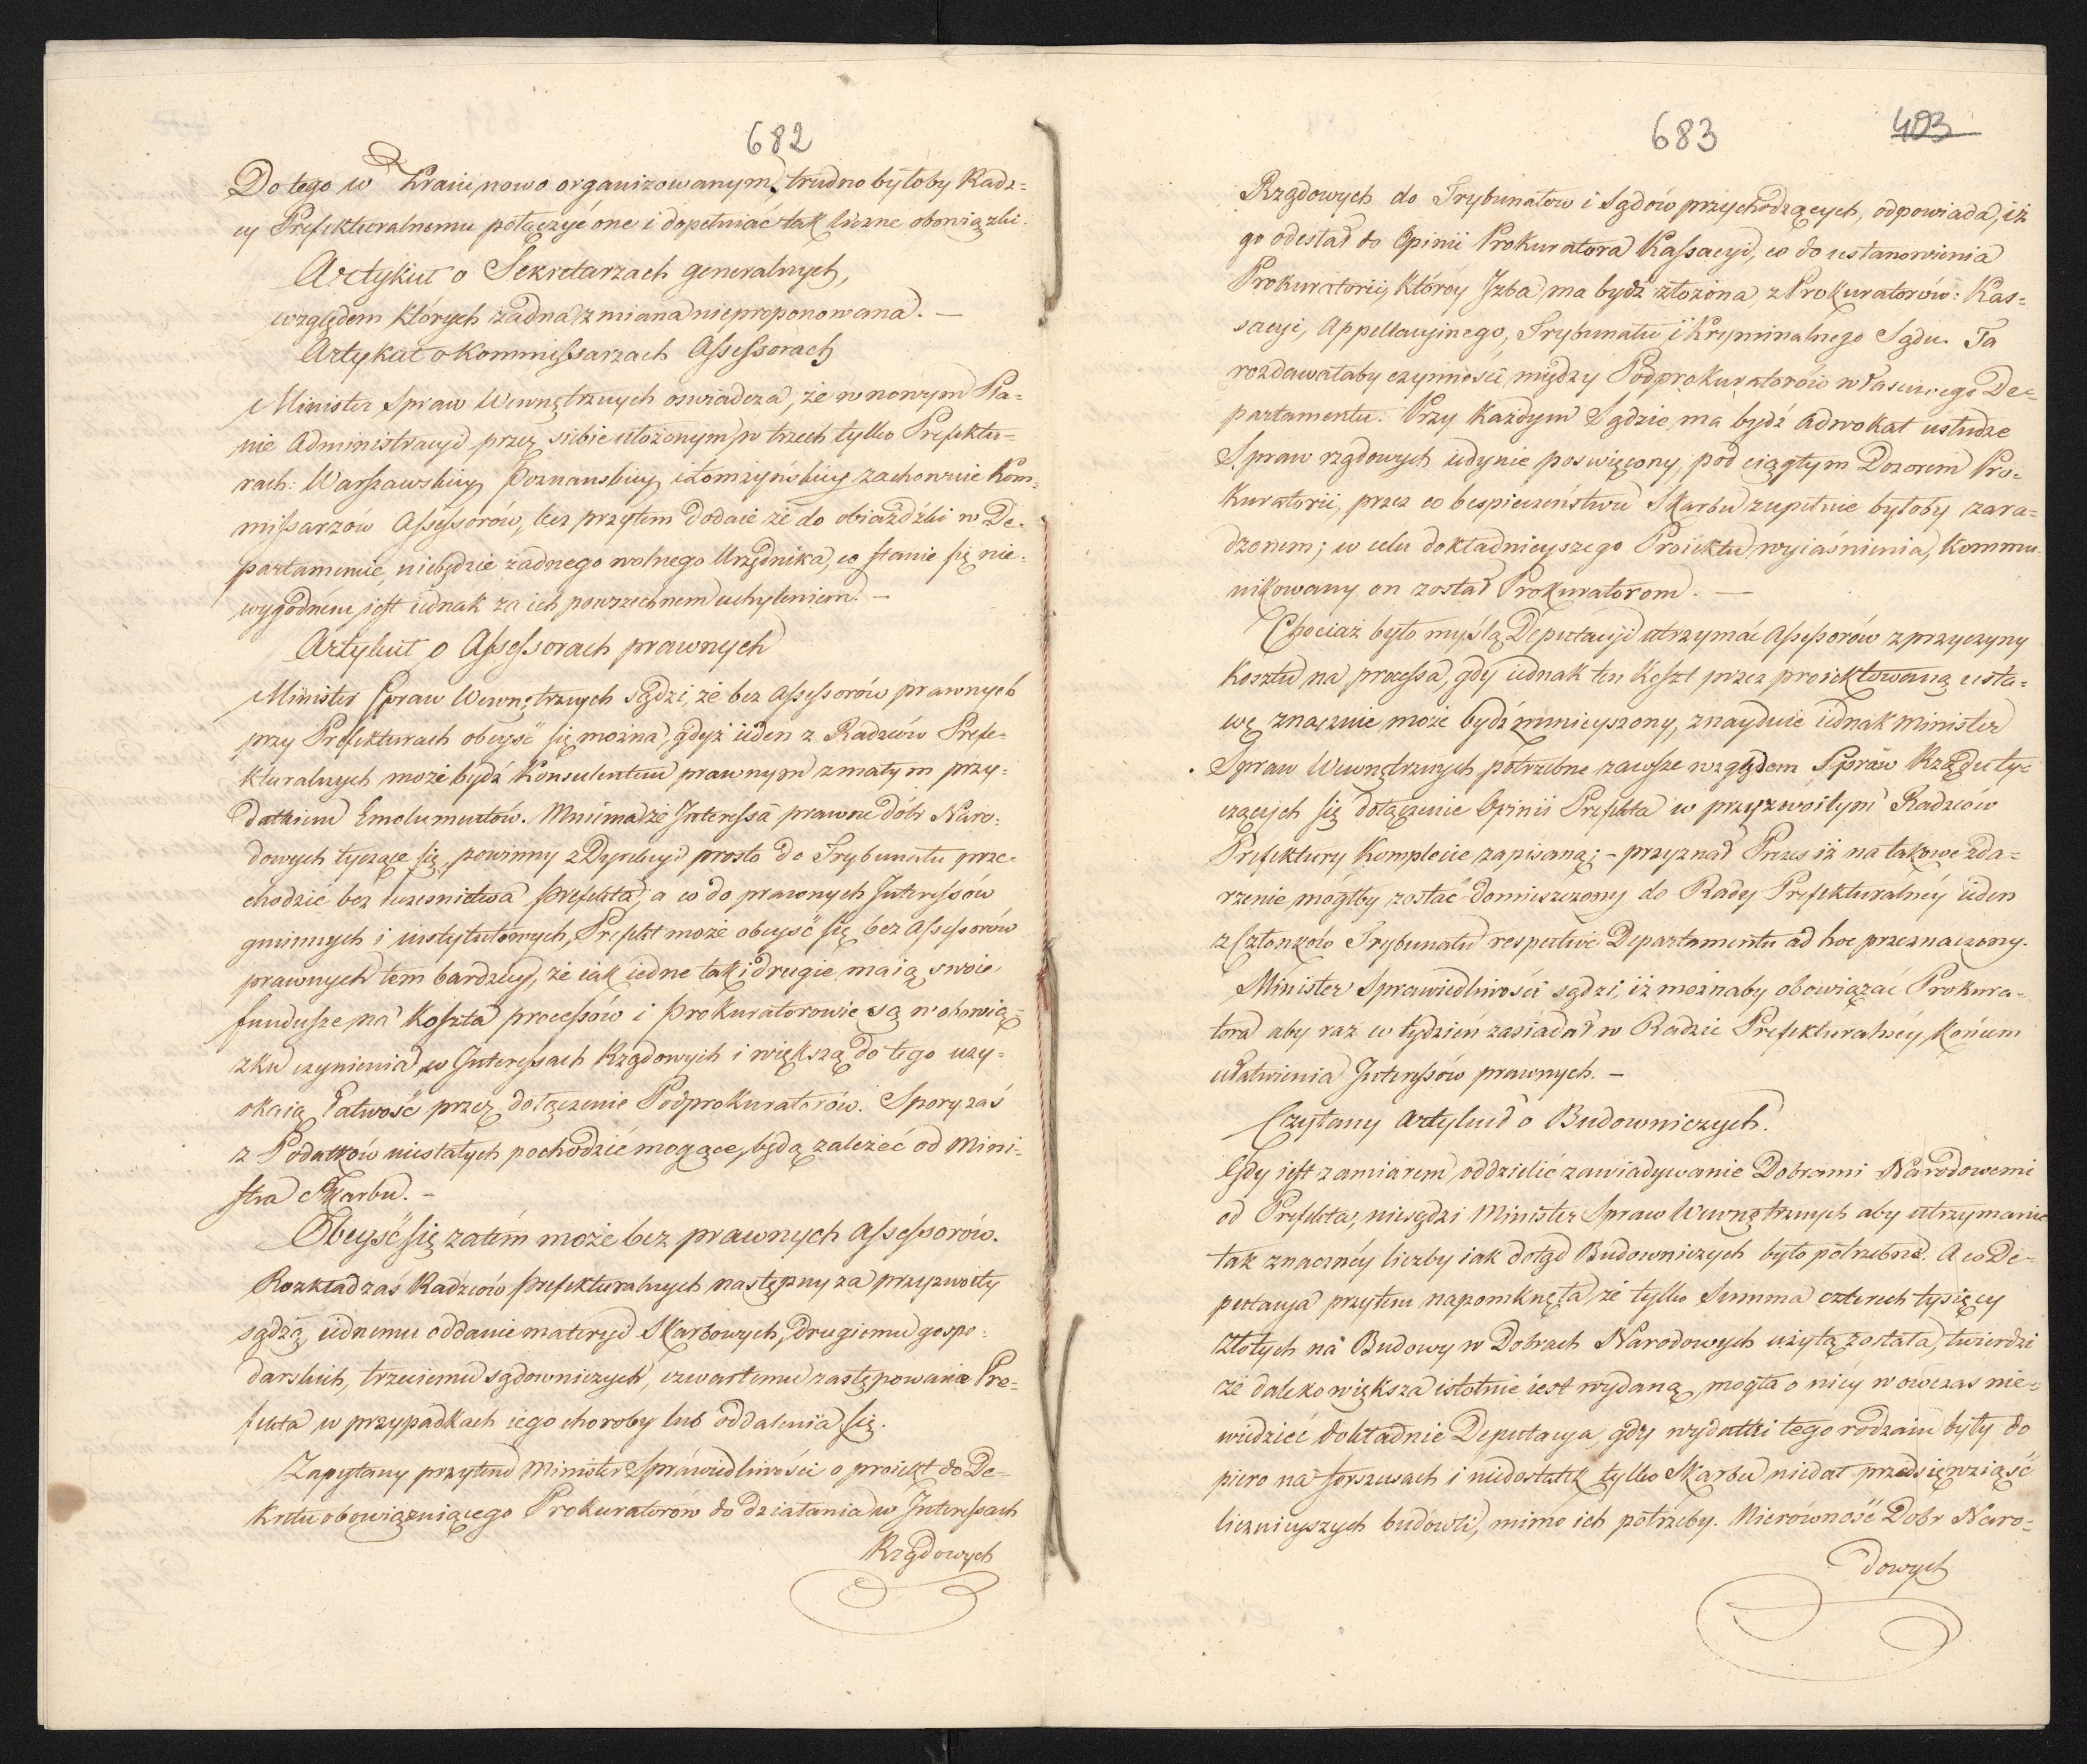 682
Do tego w Kraiu nowo organizowanym, trudno byłoby Radz=
cy Prefekturalnemu połączyć one i dopełniać tak liczne obowiązki.
Artykuł o Sekretarzach generalnych,
względem których żadna zmiana nieproponowana. —
Artykuł o Kommissarzach Assessorach
Minister Spraw Wewnętrznych oswiadcza, że w nowym Pla=
nie Administracyi przez siebie ułożonym w trzech tylko Prefektu=
rach: Warszawskiey Poznanskiey i Łomżyńskiey zachowuie Kom=
missarzów Assessorów, lecz przytem dodaie że do obiażdżki w De=
partamencie, niebędzie żadnego wolnego Urzędnika, co stanie się nie=
wygodném, iest iednak za ich powszechnem uchyleniem. —
Artykuł o Assessorach prawnych
Minister Spraw Wewnętrznych sądzi, że bez Assessorów prawnych
przy Prefekturach obeyść się można, gdyż ieden z Radzców Prefe=
kturalnych może bydź Konsulentem prawnym z małym przy=
datkiem Emolumentów. Mniema że Interessa prawne dóbr Naro=
dowych tyczące się, powinny z Dyrekcyi prosto do Trybunału prze=
chodzić bez uczesnictwa Prefekta; a co do prawnych Interessów
gminnych i instytutowych, Prefekt może obeyść się bez Assessorów
prawnych tem bardziey, że iak iedne tak i drugie maią swoie
fundusze na Koszta processów i Prokuratorowie są w obowią=
zku czynienia w Interessach Rządowych i większą do tego uzy=
skaią łatwość przez dołączenie Podprokuratorów. Spory zaś
z Podatków niestałych pochodzić mogące, będą zależeć od Mini=
stra Skarbu. —
Obeyść się zatém może bez prawnych Assessorów.
Rozkład zaś Radzców Prefekturalnych następny za przyzwoity
sądzą, iednemu oddanie materyi Skarbowych, drugiemu gospo=
darskich, trzeciemu sądowniczych, czwartemu zastępowanie Pre=
fekta w przypadkach iego choroby lub oddalenia się.
Zapytany przytem Minister Sprawiedliwości o proiekt do De=
kretu obowiązuiącego Prokuratorów do działania w Interessach
Rządowych
683
403
Rządowych do Trybunałow i Sądów przychodzących, odpowiada, iż
go odesłał do Opinii Prokuratora Kassacyi, co do ustanowienia
Prokuratorii, któréy Izba ma bydź złożona z Prokuratorów: Kas=
sacyi, Appellacyinego, Trybunału i Kryminalnego Sądu. Ta
rozdawałaby czynności między Podprokuratorów właściwego De=
partamentu. Przy Każdym Sądzie ma bydź Adwokat usłudze
Spraw rządowych iedynie poswięcony, pod ciągłym Dozorem Pro=
kuratorii, przez co bespieczeństwu Skarbu zupełnie byłoby zara=
dzonem; w celu dokładnieyszego Proiektu wyiaśnienia, Kommu=
nikowany on został Prokuratorom. —
Chociaż było myślą Deputacyi utrzymać Assessorów z przyczyny
Kosztu na processa, gdy iednak ten Koszt przez proiektowaną usta=
wę znacznie może bydź mnieyszony, znayduie iednak Minister
Spraw Wewnętrznych potrzebne zawsze względem Spraw Rządu ty=
czących się dołączenie Opinii Prefekta w przyzwoitym Radzców
Prefektury Komplecie zapisaną; – przyznał Prezes iż na takowe zda=
rzenie mógłby zostać domieszczony do Rady Prefekturalnéy ieden
z Członków Trybunału respective Departamentu ad hoc przeznaczony.
Minister Sprawiedliwości sądzi, iż możnaby obowiązać Prokura=
tora aby raz w tydzień zasiadał w Radzie Prefekturalnéy, Końcem
ułatwienia Interessów prawnych. —
Czytany Artykuł o Budowniczych.
Gdy iest zamiarem oddzielić zawiadywanie Dobrami Narodowemi
od Prefekta, niesądzi Minister Spraw Wewnętrznych aby utrzymanie
tak znacznéy liczby iak dotąd Budowniczych było potrzebne. A co De=
putacya przytem napomknęła że tylko Summa czterech tysięcy
złotych na Budowy w Dobrach Narodowych użytą została, twierdzi
że daleko większa istotnie iest wydaną, mogła o niéy wówczas nie=
wiedzieć dokładnie Deputacya, gdy wydatki tego rodzaiu były do
piero na forszusach i niedostatek tylko Skarbu niedał przedsięwziąść
licznieyszych budowli, mimo ich potrzeby. Nierówność Dobr Naro=
dowych